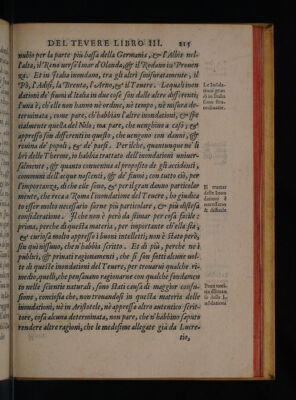 DEL TEVERE LIBRO III. 215
nubio per la parte più bassa della Germania, & l'Albio nel-
l'alta, il Reno uerso l'mar d'Olanda, & il Rodano in Prouen
za. Et in Italia inondano, tra gli altri sinisuratamente, il
Pò, l'Adisi, la Brenta, l'Arno, & il Teuere. Lequali inon
dationi de' fiumi d'Italia in due cose son dalle altre differenti,
l'una è, ch'elle non hanno nè ordine, nè tempo, nè misura de-
terminata, come pare, c'habbian l'altre inondationi, & spe
cialmente questa del Nilo; ma pare, che uenghino a caso; &
appresso son differenti in questo, che uengono con danni, &
ruina de' popoli, & de' paesi. Per ilche, quantunque ne li
bri delle Therme, io habbia trattato dell'inondationi uniuer-
salmente, & quanto conueniua al proposito de gli accidenti,
communi dell'acque nascenti, & de' fiumi; con tutto ciò, per
l'importanza, di che elle sono, & per il gran danno particolar
mente, che reca a Roma l'inondatione del Teuere, io giudico
in esser molto necessario farne più particolare, & più distesa
consideratione. Il che non è però da stimar per cosa facile;
prima, perche di questa materia, per importante ch'ella sia,
& curiosa molto appresso i buoni intelletti; non è stato però,
sin quì nissuno, che n'habbia scritto. Et di più, perche ne i
publici, & priuati ragionamenti, che si son fatti alcune uol-
te di queste inondationi del Teuere, per trouarui qualche ri-
medio, quelli, che pensauano ragionarne con qualche fondamen
to nelle scientie naturali, sono stati causa di maggior confu-
sione, conciosia che, non trouandosi in questa materia delle
inondationi, nè in Aristotele, nè appresso altro autentico scrit-
tore, cosa alcuna determinata, non pare, che n'habbino saputo
rendere altre ragioni, che le medesime allegate già da Lucre-
tio,
Le Inōda-
tioni
Italia
& distesa